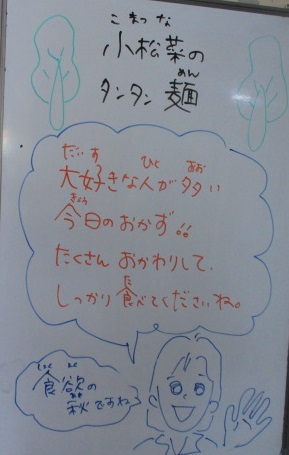 こまつな
小松菜の
めん
タンタン麺
だいす ひと おお
大好きな人が多い
きょう
今日のおかず!!
たくさんおかわりして、
た
しっかり食べてくださいね。
しょくよく
食欲の
あき
秋ですね